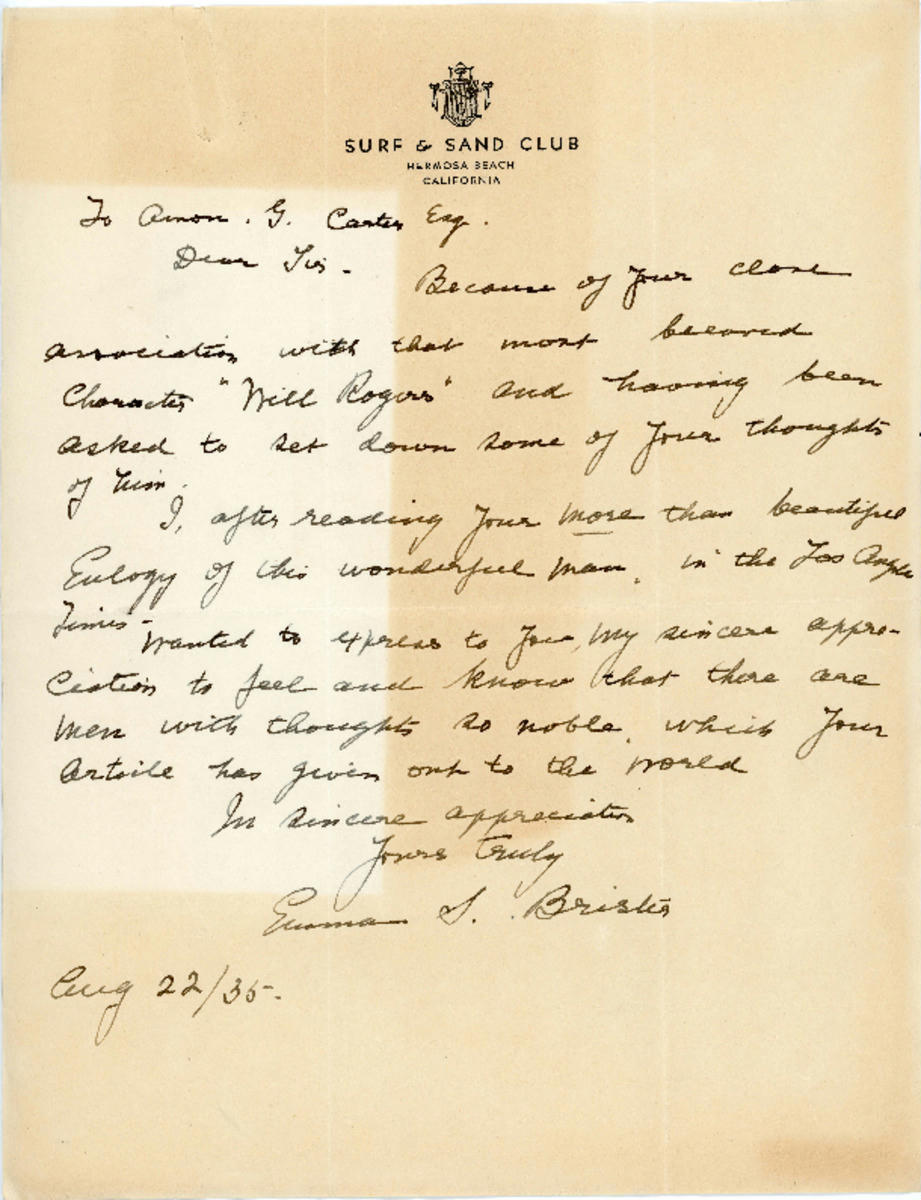 SURF & SAND CLUB
HERMOSA BEACH
CALIFORNIA
To Amon. G. Carter Esq.
Dear Sir -
Because of your close
association with that most beloved
Character "Will Rogers" and having been
asked to set down some of your thoughts
of him.
I, after reading your more than beautiful
Eulogy of this wonderful man, in the Los Angeles
Times -
Wanted to express to you, my sincere appre-
ciation to feel and know that there are
men with thoughts so noble, which your
Article has given out to the world
In sincere appreciation
Yours truly
Emma S. Brister
Aug 22/35.